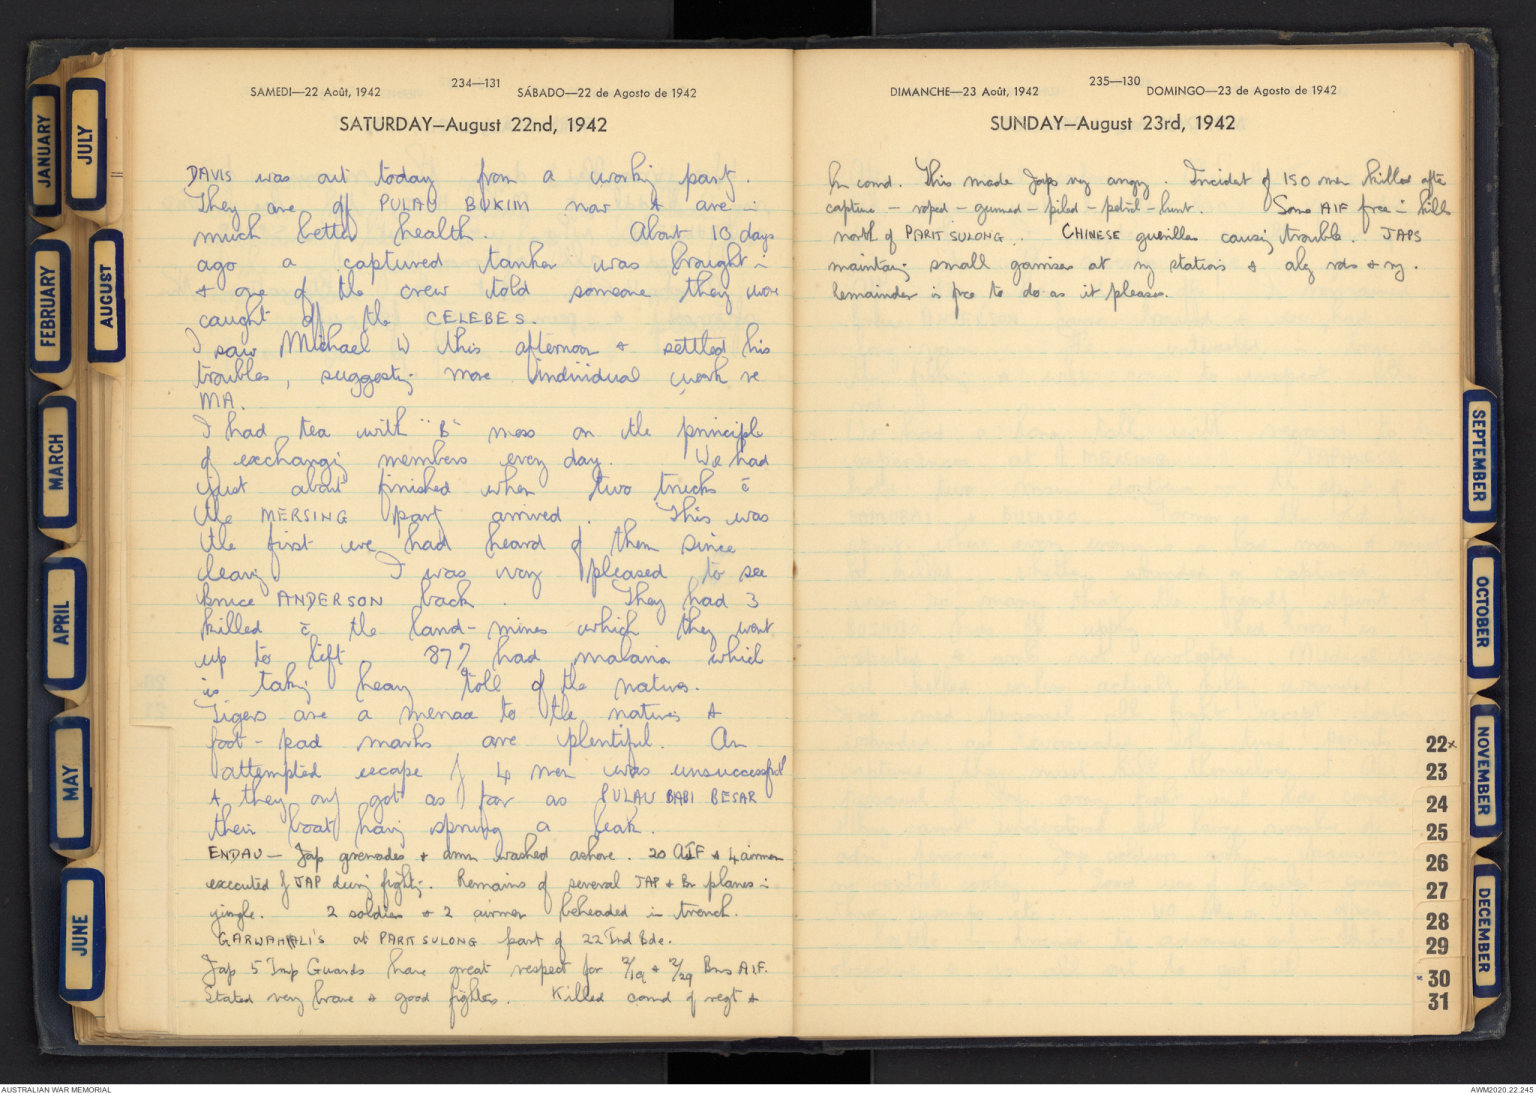 JANUARY
FEBRUARY
MARCH
APRIL
MAY
JUNE
JULY
AUGUST
234—131
SAMEDI—22 Août, 1942
SÁBADO—22 de Agosto de 1942
SATURDAY—August 22nd, 1942
DAVIS was out today from a working party.
They are off PULAU BUKIM now & are in
much better health. About 10 days
ago a captured tanker was brought in
& one of the crew told someone they were
caught off the CELEBES.
I saw Michael W this afternoon & settled his
troubles, suggesting more individual work re
MA.
I had tea with "B" mess on the principle
of exchanging members every day. We had
just about finished when two trucks c̄
the MERSING party arrived. This was
the first we had heard of them since
leaving I was very pleased to see
Bruce ANDERSON back. They had 3
killed c̄ the land-mines which they went
up to lift 87% had malaria which
is taking heavy toll of the natives.
Tigers are a menace to the natives &
foot-pad marks are plentiful. An
attempted escape of 4 men was unsuccessful
& they only got as far as PULAU BABI BESAR
their boat having sprung a leak.
ENDAU — Jap grenades & ammn washed ashore. 20 AIF & 4 airmen
executed by JAP during fighting. Remains of several JAP & Br planes in
jungle. 2 soldiers & 2 airmen beheaded in trench.
GARWAHALI'S at PARIT SULONG part of 22 Ind Bde.
Jap 5 Imp Guards have great respect for 2/19 & 2/29 Bns AIF.
Stated very brave & good fighters. Killed comd of regt &
235—130
DIMANCHE—23 Août, 1942
DOMINGO—23 de Agosto de 1942
SUNDAY—August 23rd, 1942
bn comd. This made Japs very angry. Incident of 150 men killed after
capture — roped — gunned — piled — petrol — burnt. Some AIF free in hills
north of PARIT SULONG. CHINESE guerillas causing trouble. JAPS
maintaing small garrisons at ry stations & along rds & ry.
Remainder is free to do as it pleases.
SEPTEMBER
OCTOBER
NOVEMBER
DECEMBER
22
23
24
25
26
27
28
29
30
31
AUSTRALIAN WAR MEMORIAL
AWM2020.22.245